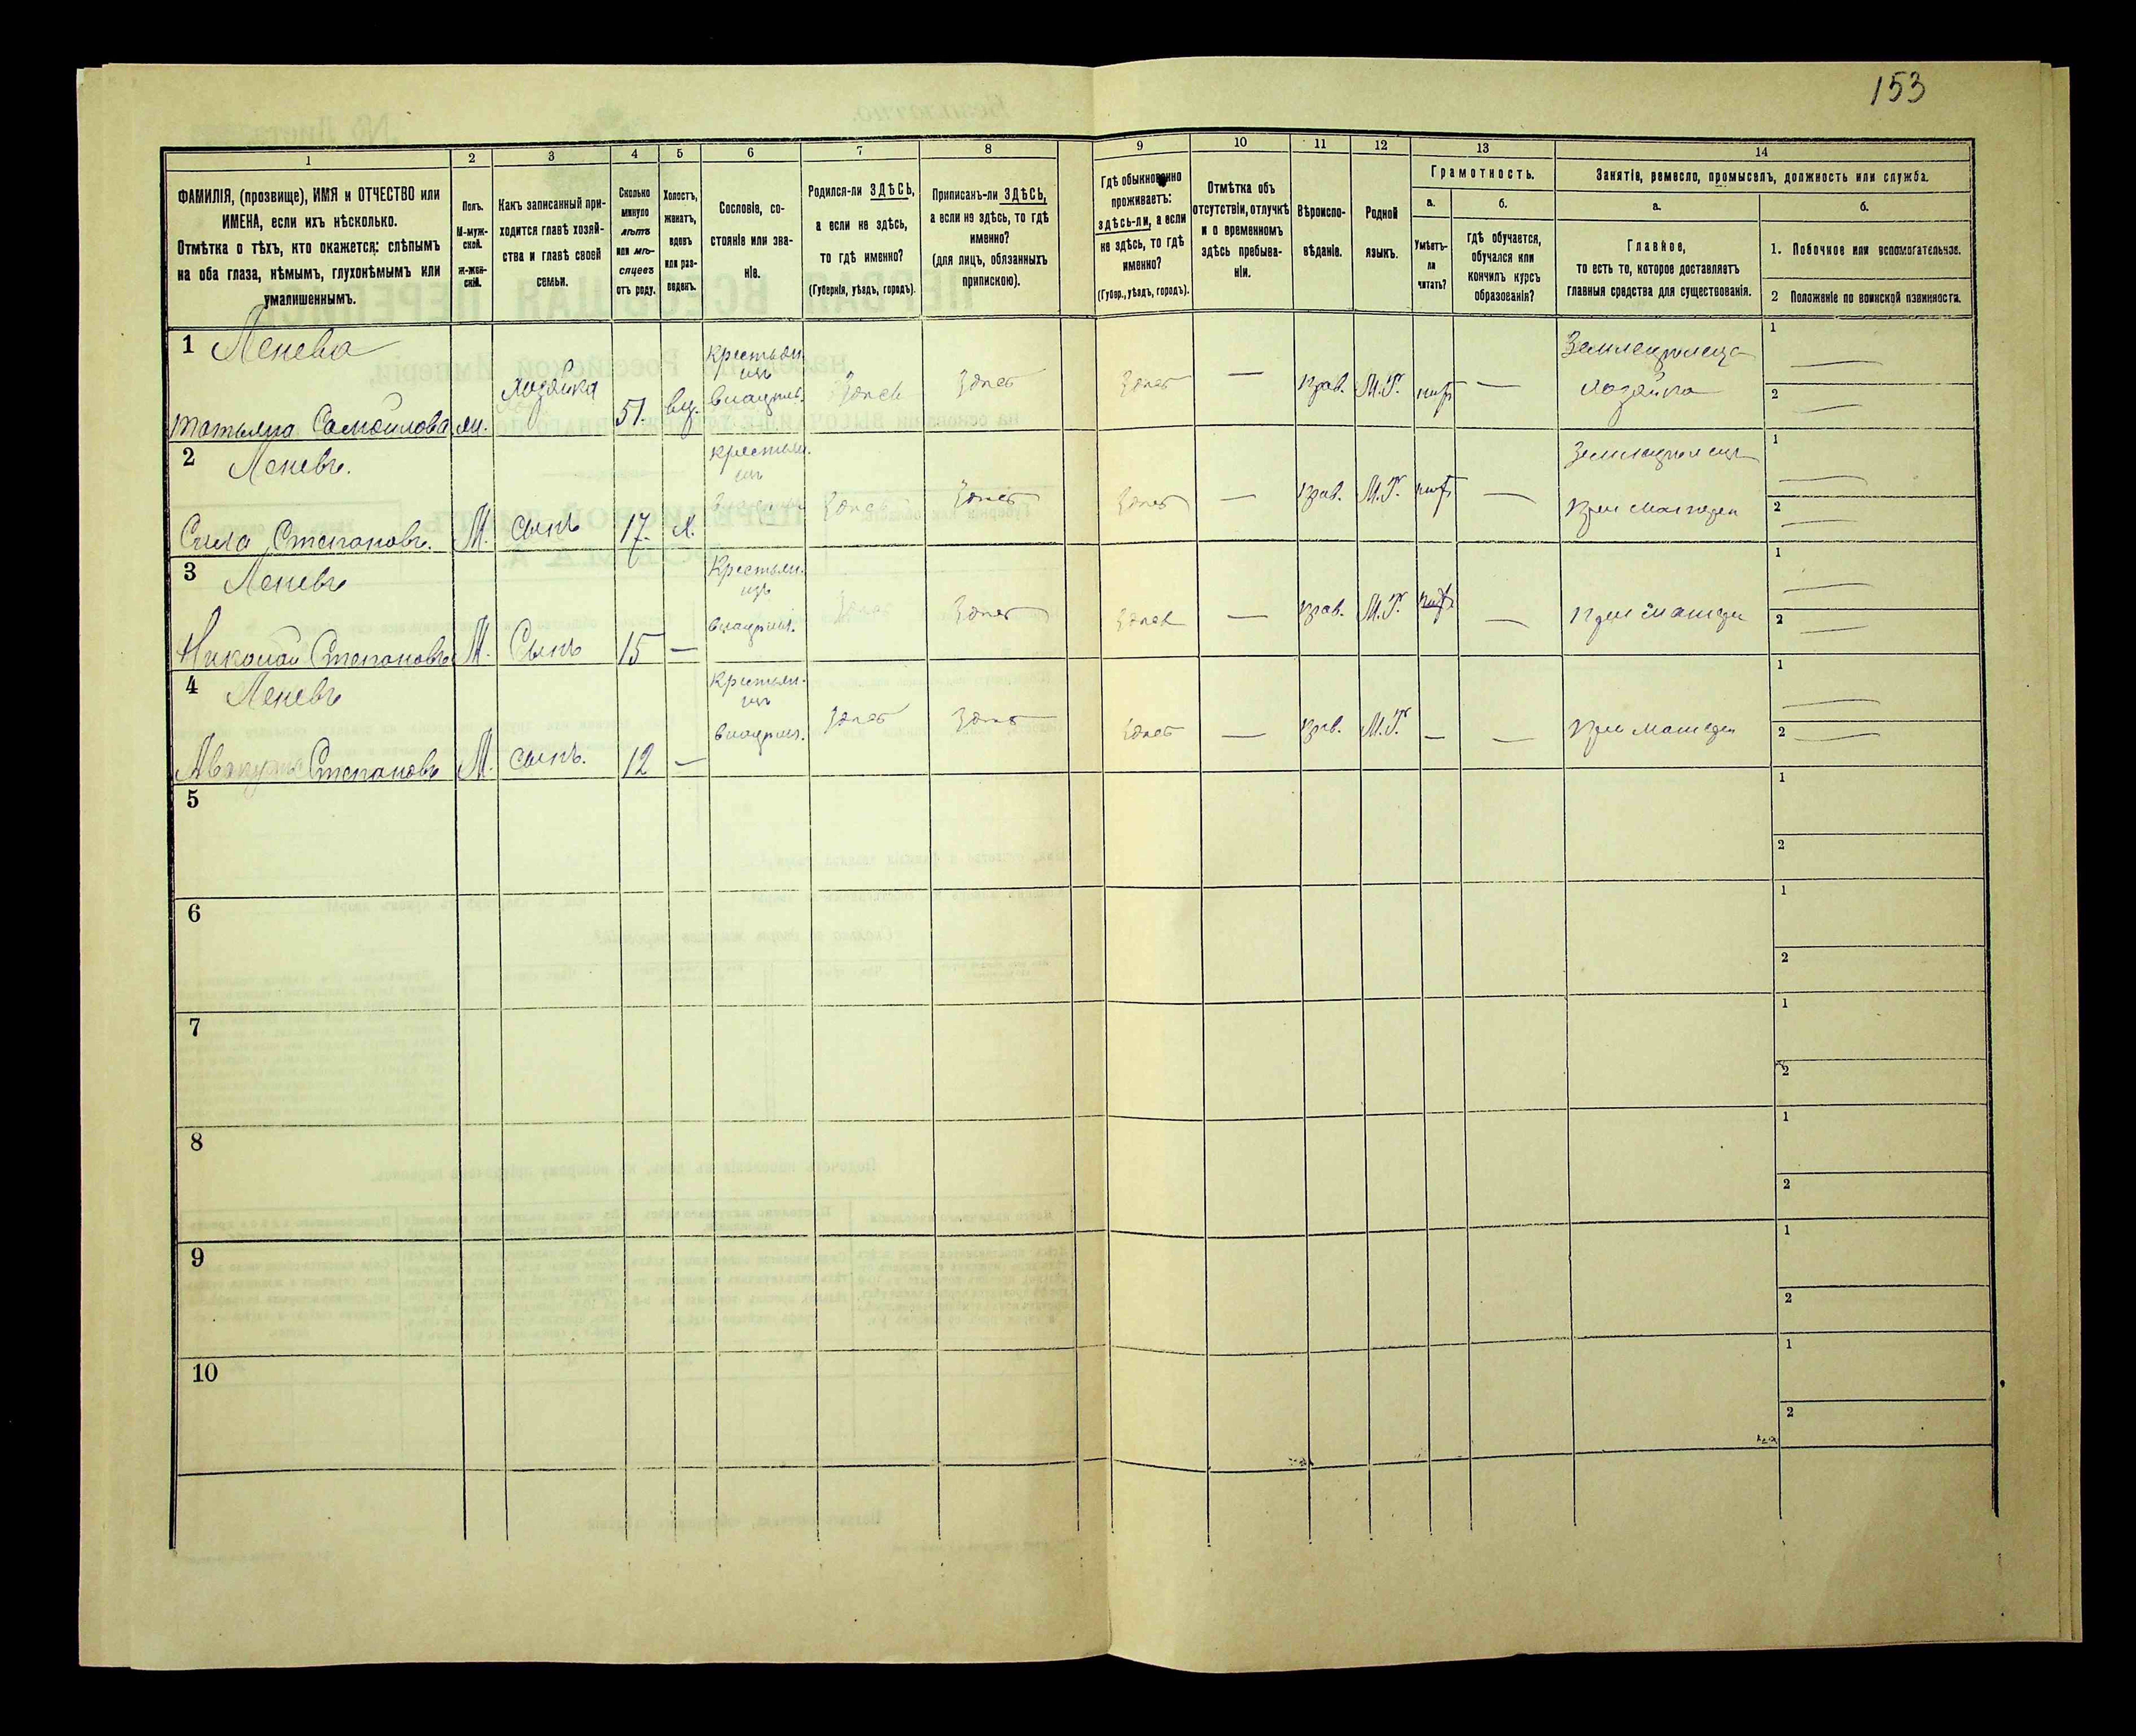 153
1 2 3 4 5 6 7 8 9 10 11 12 13 14
ФАМИЛІЯ, (прозвище), ИМЯ и ОТЧЕСТВО или
ИМЕНА, если ихъ нѣсколько.
Отмѣтка о тѣхъ, кто окажется: слѣпымъ
на оба глаза, нѣмымъ, глухонѣмымъ или
умалишеннымъ.
Полъ.
М-муж-
ской.
Ж-жен-
скій.
Какъ записанный при-
ходится главѣ хозяй-
ства и главѣ своей
семьи.
Сколько
минуло
лѣтъ
или мѣ-
сяцевъ
отъ роду.
Холостъ,
женатъ,
вдовъ
или раз-
веденъ.
Сословіе, со-
стояніе или зва-
ніе.
Родился-ли ЗДѢСЬ,
а если не здѣсь,
то гдѣ именно?
(Губернія, уѣздъ, городъ).
Приписанъ-ли ЗДѢСЬ,
а если не здѣсь, то гдѣ
именно?
(для лицъ, обязанныхъ
припискою).
Гдѣ обыкновенно
проживаетъ:
здѣсь-ли, а если
не здѣсь, то гдѣ
именно?
(Губер., уѣздъ, городъ).
Отмѣтка объ
отсутствіи, отлучкѣ
и о временномъ
здѣсь пребыва-
ніи.
Вѣроиспо-
вѣданіе.
Родной
языкъ.
Грамотность.
а.
Умѣетъ-
ли
читать?
б.
Гдѣ обучается,
обучался или
кончилъ курсъ
образованія?
Занятіе, ремесло, промыселъ, должность или служба.
а.
Главное,
то есть то, которое доставляетъ
главныя средства для существованія.
б.
1. Побочное или вспомогательное.
2 Положеніе по воинской повинности.
1 Ленева
Татьяна Самойлова
Хозяйка
51.
вд.
Крестьян
изъ
владѣль.
Здѣсь
Здѣсь
Здѣсь
—
прав.
М.Р.
—
Хозяйка
1 —
2 —
2 Леневъ.
Сила Степановъ.
М.
сынъ
17.
х.
крестьян.
изъ
Здѣсь
Здѣсь
Здѣсь
—
прав.
М.Р.
—
при матери
1 —
2 —
3 Леневъ
Николай Степановъ
М.
Сынъ
15
—
Крестьян.
изъ
владѣль.
Здѣсь
Здѣсь
Здѣсь
—
прав.
М.Р.
—
при матери
1 —
2 —
4 Леневъ
Аввакумъ Степановъ
М.
сынъ.
12
—
Крестьян.
изъ
владѣль.
Здѣсь
Здѣсь
Здѣсь
—
прав.
М.Р.
—
—
при матери
1 —
2 —
5
1
2
6
1
2
7
1
2
8
1
2
9
1
2
10
1
2